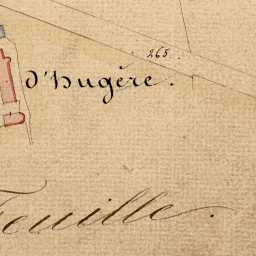 265.
d'Hugère.
Feuille.